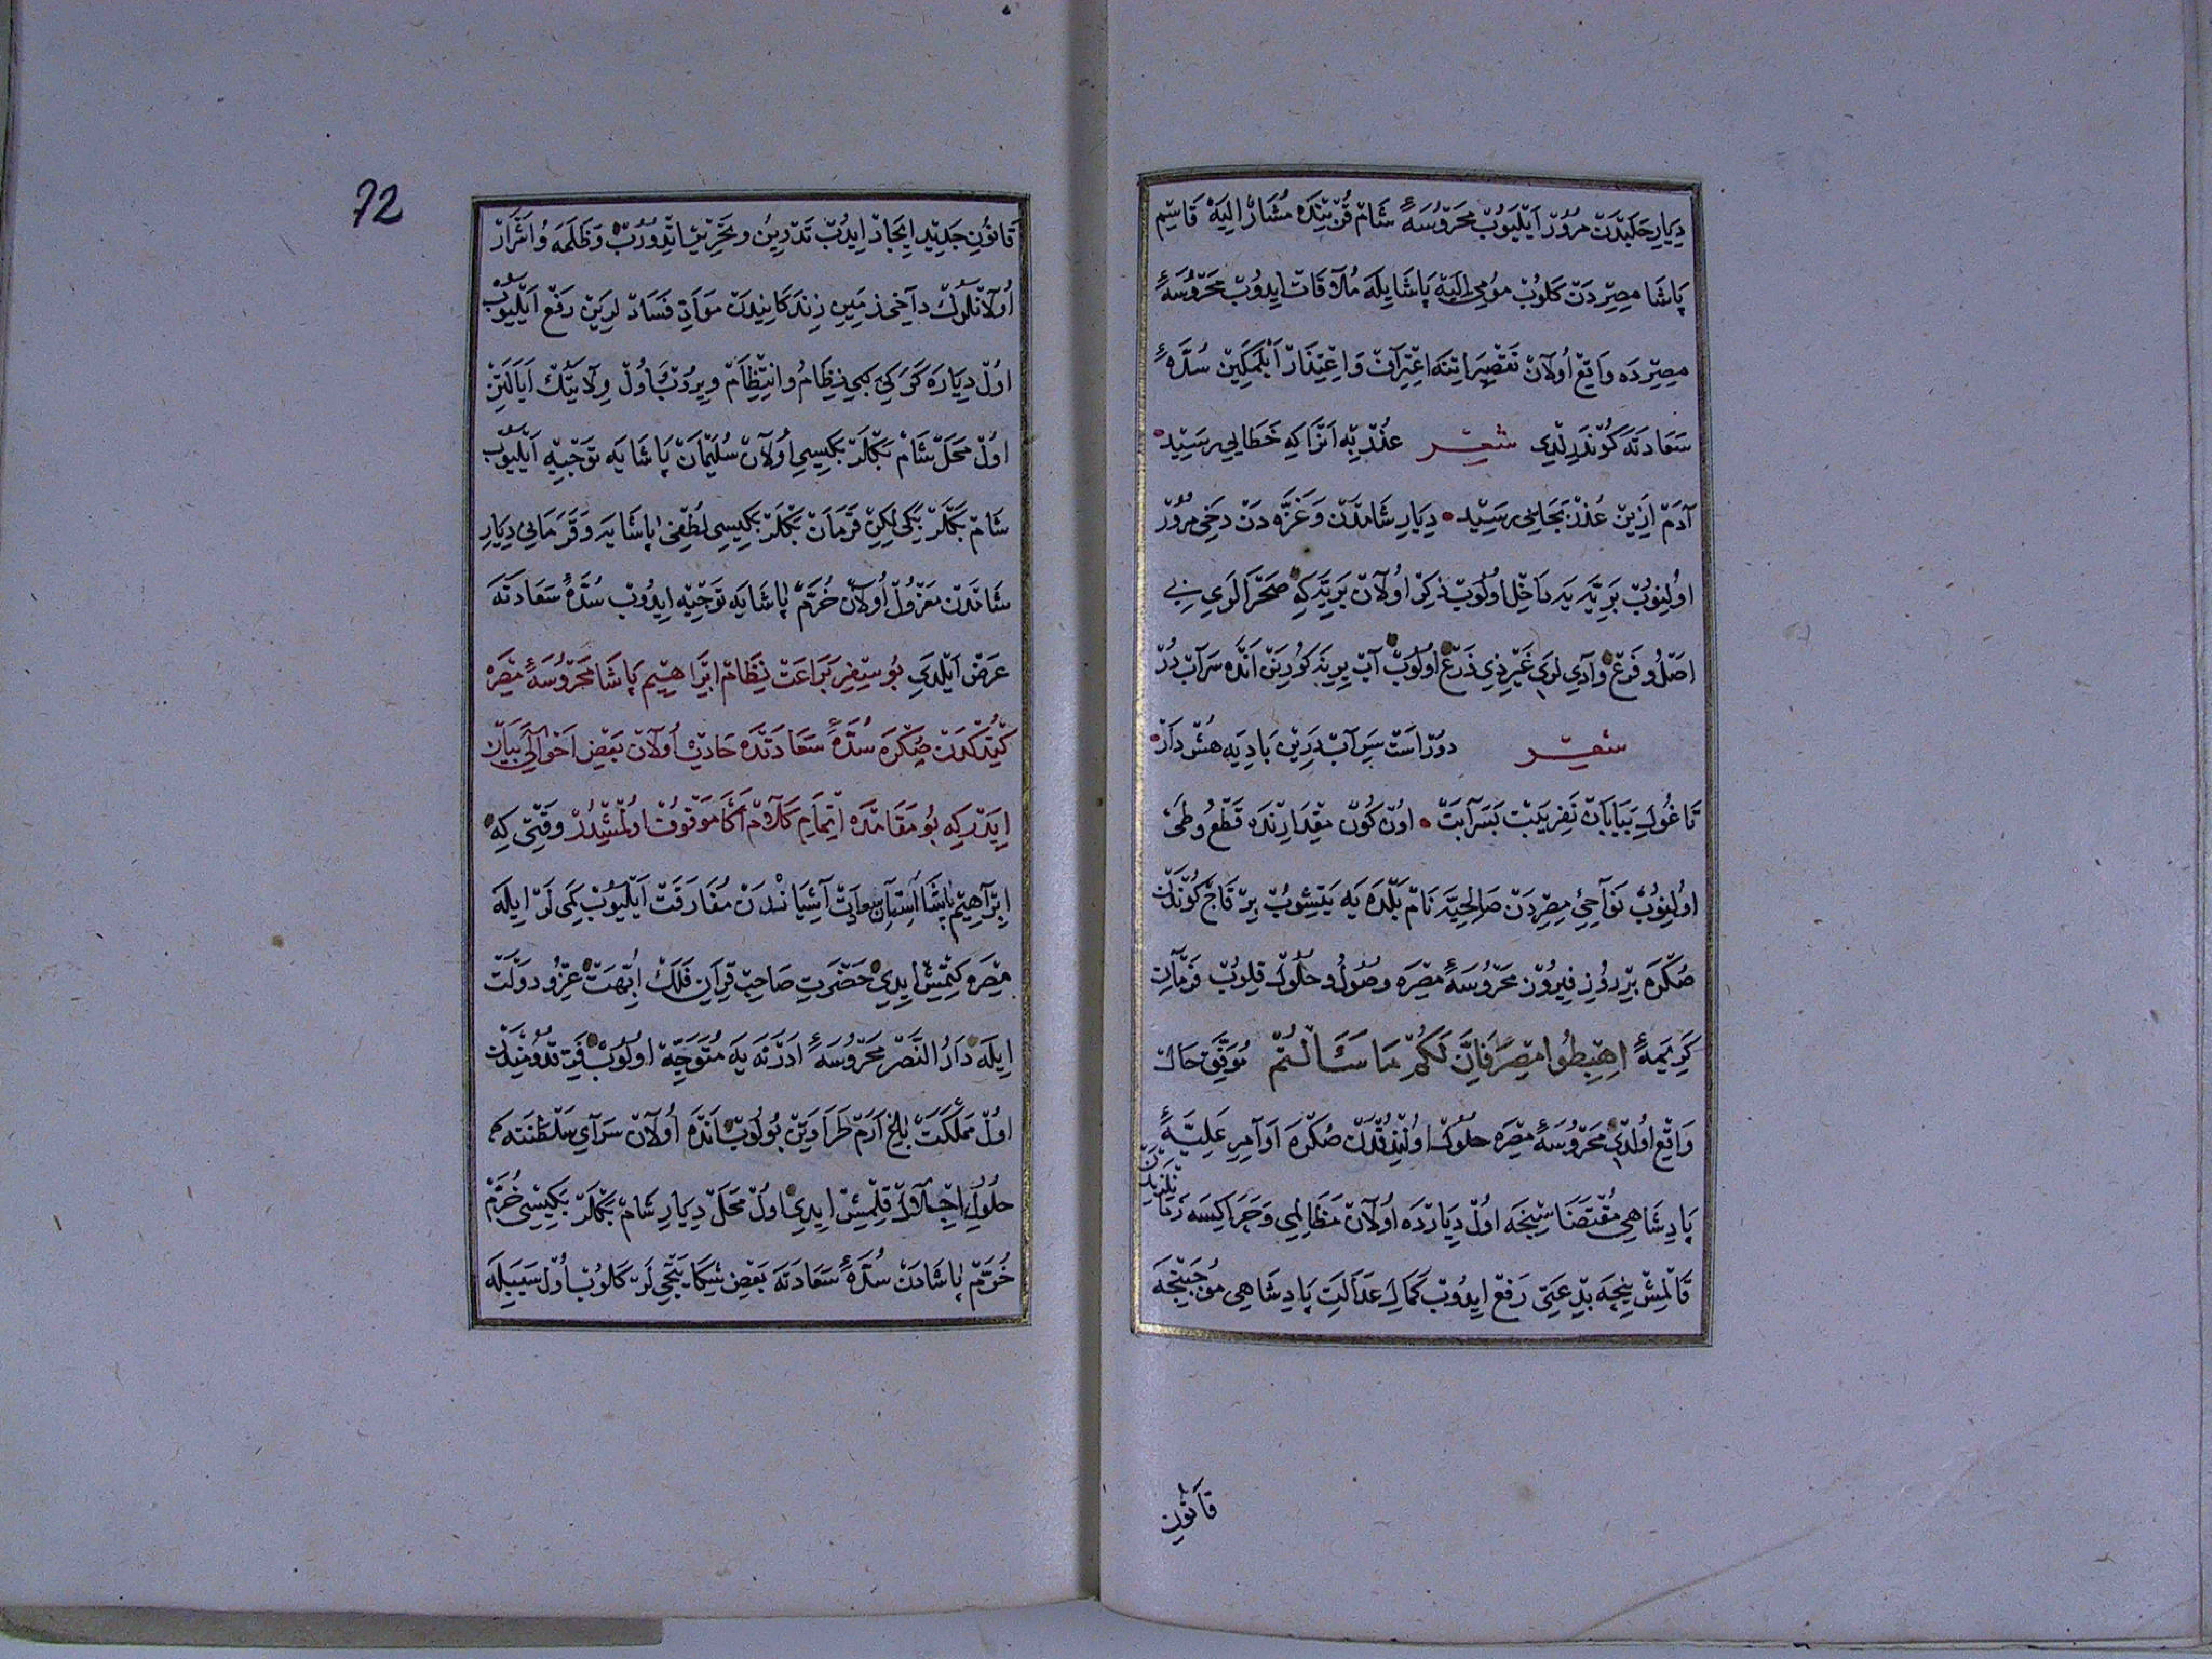 دِيَارِ حَلَبْدَنْ مُرُورْ اَيْلَيُوبْ مَحْرُوسَهٔ شَامْ قُرْبِنْدَه مُشَارْ اِلَيْهْ قَاسِمْ
پَاشَا مِصِرْدَنْ كَلُوبْ مُومٰى اِلَيْهْ پَاشَايِلَه مُلَاقَاتْ اِيدُوبْ مَحْرُوسَهٔ
مِصِرْدَه وَاقِعْ اُولَانْ تَقْصِيرَاتِنَه اِعْتِرَافْ وَ اِعْتِذَارْ اَيْلَمَكِينْ سُدَّهٔ
سَعَادَتَه كُونْدَرِلْدِى شعر عُذْرْ بِهْ اَنْرَا كِه خَطَايِى رَسِيدْ
آدَمْ اَزِينْ عُذْرْ بَجَايِى رَسِيدْ دِيَارِ شَامْدَنْ وَ غَزَّه دَنْ دَخِى مُرُورْ
اُولِنُوبْ بَرِيَّه يَه دَاخِلْ اُولُوبْ ذِكِرْ اُولَانْ بَرِيَّه كِه صَحْرَالَرِى بِى
اَصْلُ و فَرْعْ وَادِى لَرِى غَيْرِ ذِى ذَرْعْ اُولُوبْ آبْ يِرِينَه كُورِينَنْ اَنْدَه سَرَابْ دُرْ
شعر دُورْ اَسْتْ سَرِ آبْ دَرِينْ بَادِيَه هُشْ دَارْ
تَا غُولِ بَيَابَانْ نَفِرِيبَتْ بَسَرَابَتْ اُونْ كُونْ مِقْدَارِنْدَه قَطْعُ و طَىْ
اُولِنُوبْ نَوَاحِئِ مِصِرْدَنْ صَالِحِيَّه نَامْ بَلْدَه يَه يَتِشُوبْ بِرْ قَاچْ كُونْدَنْ
صُكْرَه بِرْ رُوزِ فِيرُوزْ مَحْرُوسَهٔ مِصْرَه وُصُولُ و حُلُولْ قِلُوبْ فَرْمَانِ
كَرِيمَهٔ اِهْبِطُوا مِصْرًا فَاِنَّ لَكُمْ مَا سَاَلْتُمْ مُوَفِّقِ حَالْ
وَاقِعْ اُولْدِى مَحْرُوسَهٔ مِصْرَه حُلُولْ اُولِنْدُقْدَنْ صُكْرَه اَوَامِرِ عَلِيَّهٔ
پَادِشَاهِى مُقْتَضَاسِنْجَه اُولْ دِيَارْدَه اُولَانْ مَظَالِمِى وَ چَرَاكِسَه زَمَانْلَرِنْدَنْ
قَالْمِشْ نِيچَه بِدْعَتِى رَفْعْ اِيدُوبْ كَمَالِ عَدَالَتِ پَادِشَاهِى مُوجَبِنْجَه
قَانُونِ
72
قَانُونِ جَدِيدْ اِيجَادْ اِيدُبْ تَدْوِينُ و تَحْرِيرْ اِتْدُورُبْ وَ ظَلَمَه وُ اَشْرَارْ
اُولَانْلَرُكْ دَاخِى زَمِينِ زِنْدَكَانِيدَنْ مَوَادِّ فَسَادْلَرِينْ رَفْعْ اَيْلَيُوبْ
اُولْ دِيَارَه كَرَكِى كِبِى نِظَامُ و اِنْتِظَامْ وِيرُدُبْ اُولْ وِلَايَتُكْ اَيَالَتِنْ
اُولْ مَحَلْ شَامْ بَكْلَرْبَكِيسِى اُولَانْ سُلَيْمَانْ پَاشَايَه تَوْجِيهْ اَيْلَيُوبْ
شَامْ بَكْلَرْبَكِىلِكِنْ قَرَمَانْ بَكْلَرْبَكِيسِى لُطْفِى پَاشَايَه وَ قَرَمَانِى دِيَارِ
شَامْدَنْ مَعْزُولْ اُولَانْ خُرَّمْ پَاشَايَه تَوْجِيهْ اِيدُوبْ سُدَّهٔ سَعَادَتَه
عَرْضْ اَيْلَدِى بُو سِفِرِ بَرَاعَتْ نِظَامْ اِبْرَاهِيمْ پَاشَا مَحْرُوسَهٔ مِصْرَه
كِيتْدُكْدَنْ صُكْرَه سُدَّهٔ سَعَادَتْدَه حَادِثْ اُولَانْ بَعْضِ اَحْوَالِى بَيَانْ
اِيدَرْ كِه بُو مَقَامْدَه اِتْمَامِ كَلَامْ اَكَا مَوْقُوفْ اُولْمِشْدُرْ وَقْتِى كِه
اِبْرَاهِيمْ پَاشَا آسْتَانِ سَعَادَتْ آشِيَانْدَنْ مُفَارَقَتْ اَيْلَيُوبْ كَمِى لَرْ اِيلَه
مِصْرَه كِتْمِشْ اِيدِى حَضْرَتِ صَاحِبْ قِرَانِ فَلَكْ اُبَّهَتْ عِزُّ و دَوْلَتْ
اِيلَه دَارُ النَّصْرْ مَحْرُوسَهٔ اَدَرْنَه يَه مُتَوَجِّهْ اُولُوبْ فَرِّ قُدُومْنِدَنْ
اُولْ مَمْلَكَتْ بَاغِ اِرَمْ طَرَاوَتِنْ بُولُوبْ اَنْدَه اُولَانْ سَرَاىِ سَلْطَنَتَه كِه
حُلُولِ اِجْلَالْ قِلْمِشْ اِيدِى اُولْ مَحَلْ دِيَارِ شَامْ بَكْلَرْبَكِيسِى خُرَّمْ
خُرَّمْ پَاشَادَنْ سُدَّهٔ سَعَادَتَه بَعْضِ شِكَايَتْجِى لَرْ كَلُوبْ اُولْ سَبَبِيلَه